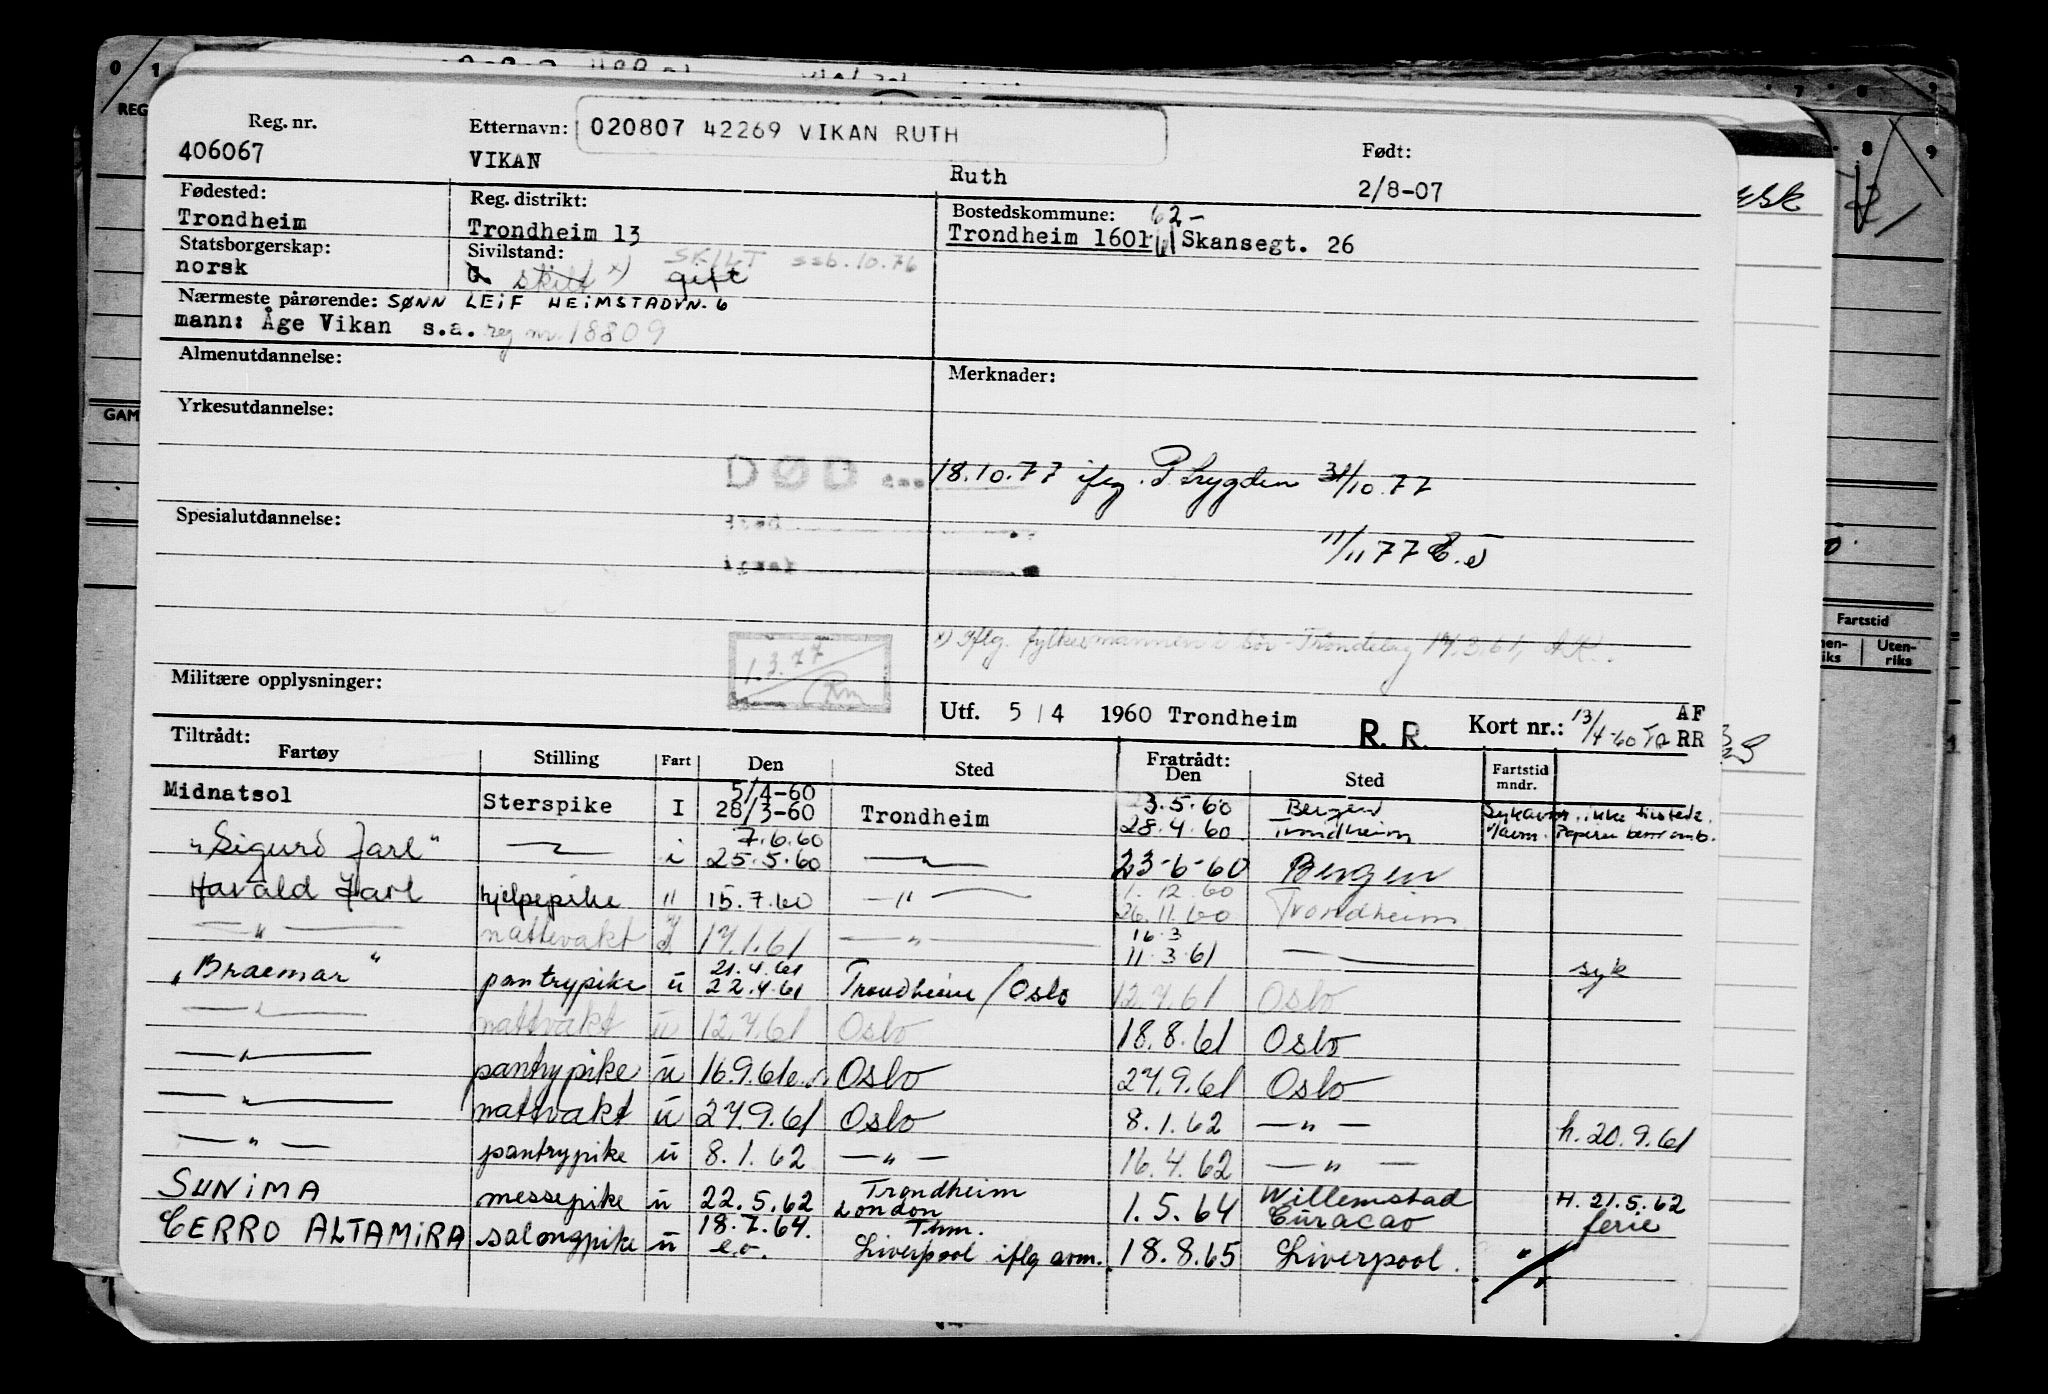 Reg. nr. Etternavn: 020807 42269 VIKAN RUTH Født:
406067 VIKAN Ruth 2/8-07
Fødested: Reg. distrikt: Bostedskommune: 62-
Trondheim Trondheim 13 Trondheim 1601 61 Skansegt. 26
Statsborgerskap: Sivilstand: SKILT ssb. 10.76
norsk G. skilt x) gift
Nærmeste pårørende: SØNN LEIF HEIMSTADVN. 6
mann: Åge Vikan s.a. reg nr. 18809
Almenutdannelse: Merknader:
Yrkesutdannelse:
DØD 18.10.77 iflg. P. trygden 31/10.77
Spesialutdannelse:
11/11 77
x) Iflg. fylkesmannen i Sør-Trøndelag 14.3.61,
1.3.77
Militære opplysninger:
Utf. 5/4 1960 Trondheim R. R. Kort nr.: 13/4-60 AF
RR
Tiltrådt: Fratrådt:
Fartøy Stilling Fart Den Sted Den Sted Fartstid mndr.
Midnatsol Sterspike I 5/4-60 28/3-60 Trondheim 3.5.60 28.4.60 Bergen Trondheim
"Sigurd Jarl" —"— i 7.6.60 25.5.60 —"— 23-6-60 Bergen
Harald Jarl hjelpepike " 15.7.60 —"— 1.12.60 26.11.60 Trondheim
—"— nattevakt I 17.1.61 —"— 16.3 11.3.61 —"— syk
"Braemar" pantrypike u 21.4.61 22.4.61 Trondheim / Oslo 12.7.61 Oslo
—"— nattvakt u 12.7.61 Oslo 18.8.61 Oslo
—"— pantrypike u 16.9.61 Oslo 27.9.61 Oslo
—"— nattvakt u 27.9.61 Oslo 8.1.62 —"— h. 20.9.61
—"— pantrypike u 8.1.62 —"— 16.4.62 —"—
SUNIMA messepike u 22.5.62 Trondheim London 1.5.64 Willemstad Curacao H. 21.5.62 ferie
CERRO ALTAMIRA salongpike u 18.7.64. e.o. Thm. Liverpool iflg avm. 18.8.65 Liverpool. "
REG
GAM
Fartstid
Uten-
riks